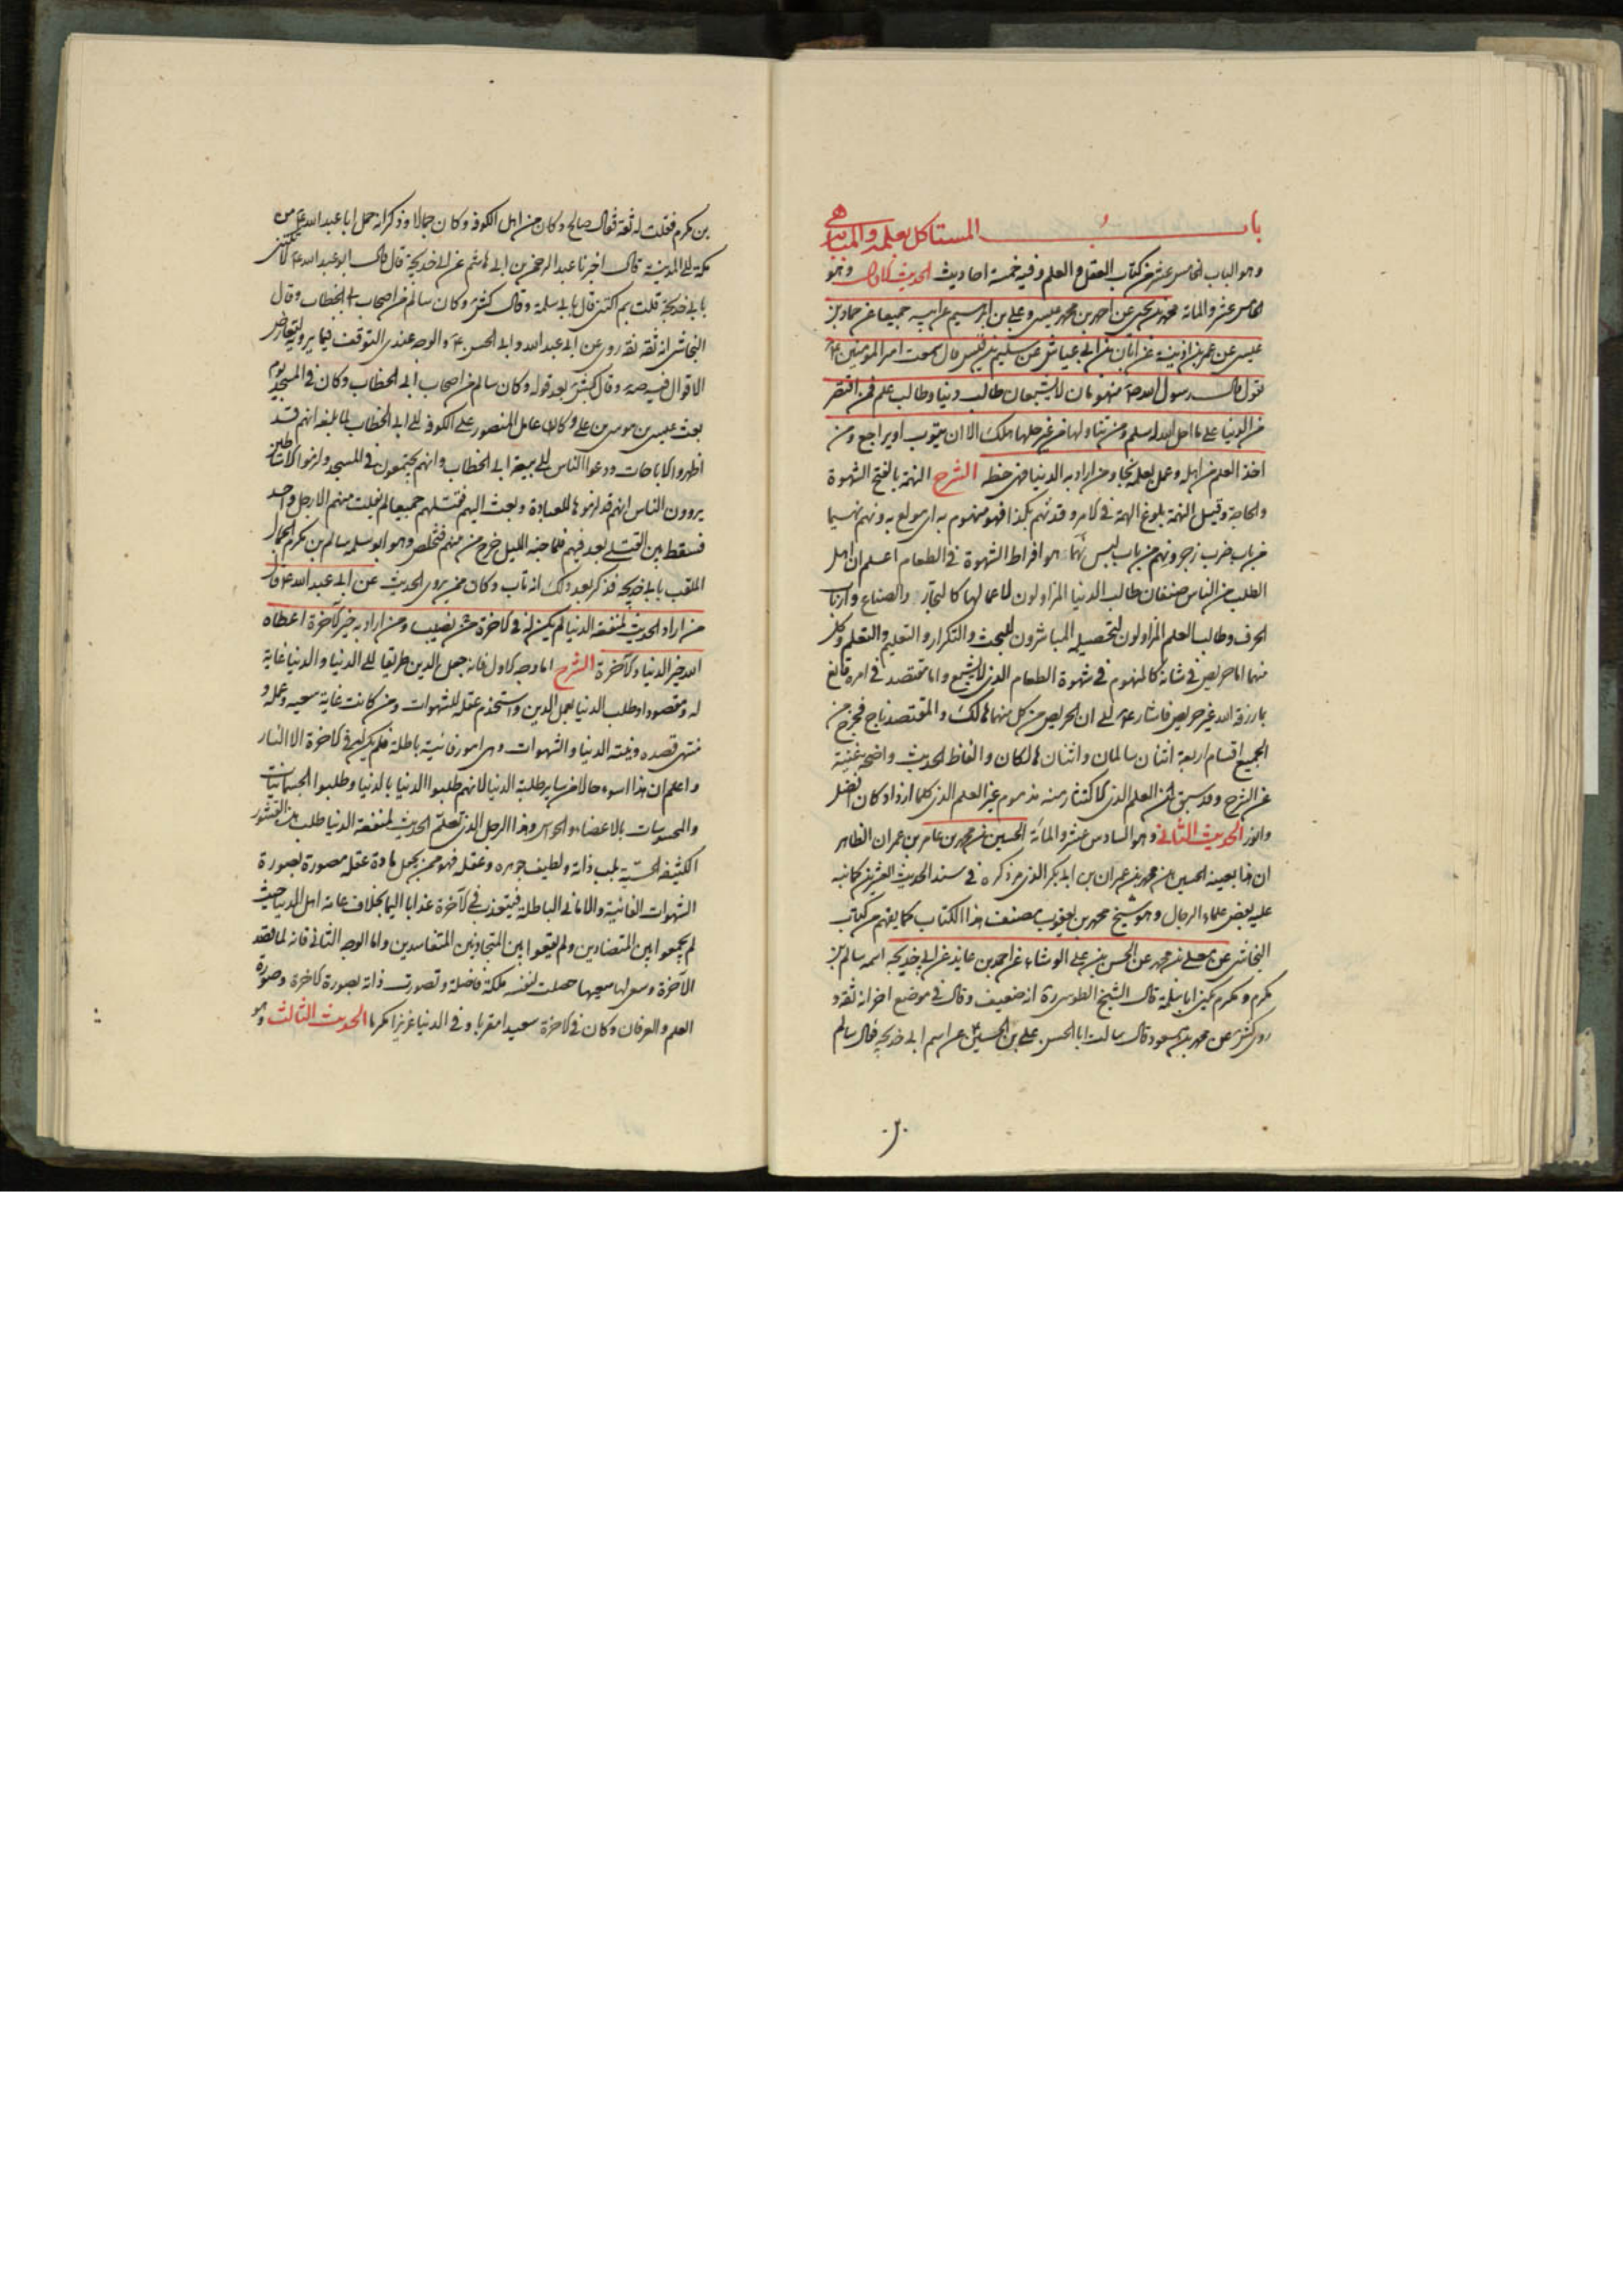 باب المستاكل بعلمه والمباهي
وهو الباب الخامس عشر من كتاب العقل والعلم وفيه خمسة احاديث الحديث الاول وهو
الخامس عشر والمائة محمد بن يحيى عن احمد بن محمد بن عيسى وعلي بن ابراهيم عن ابيه جميعا عن حماد بن
عيسى عن عمر بن اذينة عن ابان بن ابي عياش عن سليم بن قيس قال سمعت امير المؤمنين ع
يقول قال رسول الله ص منهومان لا يشبعان طالب دنيا وطالب علم فمن اقتصر
من الدنيا على ما احل الله له سلم ومن تناولها من غير حلها هلك الا ان يتوب او يراجع ومن
اخذ العلم من اهله وعمل بعلمه نجا ومن اراد به الدنيا فهي حظه الشرح النهمة بالفتح الشهوة
والحاجة وقيل النهمة بلوغ الهمة في الامر وقد نهم بكذا فهو منهوم به اي مولع به ونهم نهيما
من باب ضرب زجر ونهم من باب لبس نهما هو افراط الشهوة في الطعام اعلم ان اهل
الطلب من الناس صنفان طالب الدنيا المزاولون لاعمالها كالتجار والصناع وارباب
الحرف وطالب العلم المزاولون لتحصيله المباشرون للبحث والتكرار والتعليم والتعلم وكل
منهما اما حريص في شانه كالمنهوم في شهوة الطعام الذي لا يشبع واما مقتصد في امره قانع
بما رزقه الله غير حريص فاشار ع الى ان الحريص من كل منهما هالك والمقتصد ناج فخرج من
الجميع اقسام اربعة اثنان سالمان واثنان هالكان والفاظ الحديث واضحة غنية
عن الشرح وقد سبق ان العلم الذي الاكثار منه مذموم غير العلم الذي كلما ازداد كان افضل
وانور الحديث الثاني وهو السادس عشر والمائة الحسين بن محمد بن عامر بن عمران الظاهر
ان هذا بعينه الحسين بن محمد بن عمران بن ابي بكر الذي مر ذكره في سند الحديث العشرين كما نبه
عليه بعض علماء الرجال وهو شيخ محمد بن يعقوب مصنف هذا الكتاب كما يفهم من كتاب
النجاشي عن معلى بن محمد عن الحسن بن علي الوشاء عن احمد بن عايذ عن ابي خديجة اسمه سالم بن
مكرم ومكرم يكنى ابا سلمة قال الشيخ الطوسي ره انه ضعيف وقال في موضع اخر انه ثقة و
روى كشي عن محمد بن مسعود قال سالت ابا الحسن علي بن الحسين عن اسم ابي خديجة قال سالم
بن مكرم فقلت له ثقة فقال صالح وكان من اهل الكوفة وكان جمالا وذكر انه حمل ابا عبد الله ع من
مكة الى المدينة قال اخبرنا عبد الرحمن بن ابي هاشم عن ابي خديجة قال قال ابو عبد الله ع لا تكتني
بابي خديجة قلت بم اكتني قال بابي سلمة وقال كشي وكان سالم من اصحاب ابي الخطاب وقال
النجاشي انه ثقة ثقة روى عن ابي عبد الله وابي الحسن ع والوجه عندي التوقف فيما يرويه لتعارض
الاقوال فيه صه وقال كشي بعد قوله وكان سالم من اصحاب ابي الخطاب وكان في المسجد يوم
بعث عيسى بن موسى بن علي وكان عامل المنصور على الكوفة الى ابي الخطاب لما بلغه انهم قد
اظهروا الاباحات ودعوا الناس الى بيعة ابي الخطاب وانهم يجتمعون في المسجد ولزموا الاساطين
يروون الناس انهم قد لزموها للعبادة وبعث اليهم فقتلهم جميعا لم يفلت منهم الا رجل واحد
فسقط بين القتلى يعد فيهم فلما جنه الليل خرج من منهم فتخلص وهو ابو سلمة سالم بن مكرم الجمال
الملقب بابي خديجة فذكر بعد ذلك انه تاب وكان ممن يروي الحديث عن ابي عبد الله ع قال
من اراد الحديث لمنفعة الدنيا لم يكن له في الاخرة من نصيب ومن اراد به خير الآخرة اعطاه
الله خير الدنيا والآخرة الشرح اما وجه الاول فانه جعل الدين طريقا الى الدنيا والدنيا غاية
له ومقصودا وطلب الدنيا بعمل الدين واستخدم عقله للشهوات ومن كانت غاية سعيه وعمله و
منتهى قصده ونيته الدنيا والشهوات وهي امور فانية باطلة فلم يكن له في الاخرة الا النار
واعلم ان هذا اسوء حالا من ساير طلبة الدنيا لانهم طلبوا الدنيا بالدنيا وطلبوا الجسمانيات
والمحسوسات بالاعضاء والحواس وهذا الرجل الذي تعلم الحديث لمنفعة الدنيا طلب هذه القشور
الكثيفة الحسية بلب ذاته ولطيف جوهره وعقله فهو ممن يجعل مادة عقله مصورة بصورة
الشهوات الفانية والاماني الباطلة فيتعذب في الآخرة عذابا اليما بخلاف عامة اهل الدنيا حيث
لم يجمعوا بين المتضادين ولم يوقعوا بين المتجاذبين المتفاسدين واما الوجه الثاني فانه لما قصد
الآخرة وسعى لها سعيها حصلت لنفسه ملكة فاضلة وتصورت ذاته بصورة الاخرى وصورة
العلم والعرفان وكان في الاخرة سعيدا مقربا وفي الدنيا عزيزا مكرما الحديث الثالث وهو